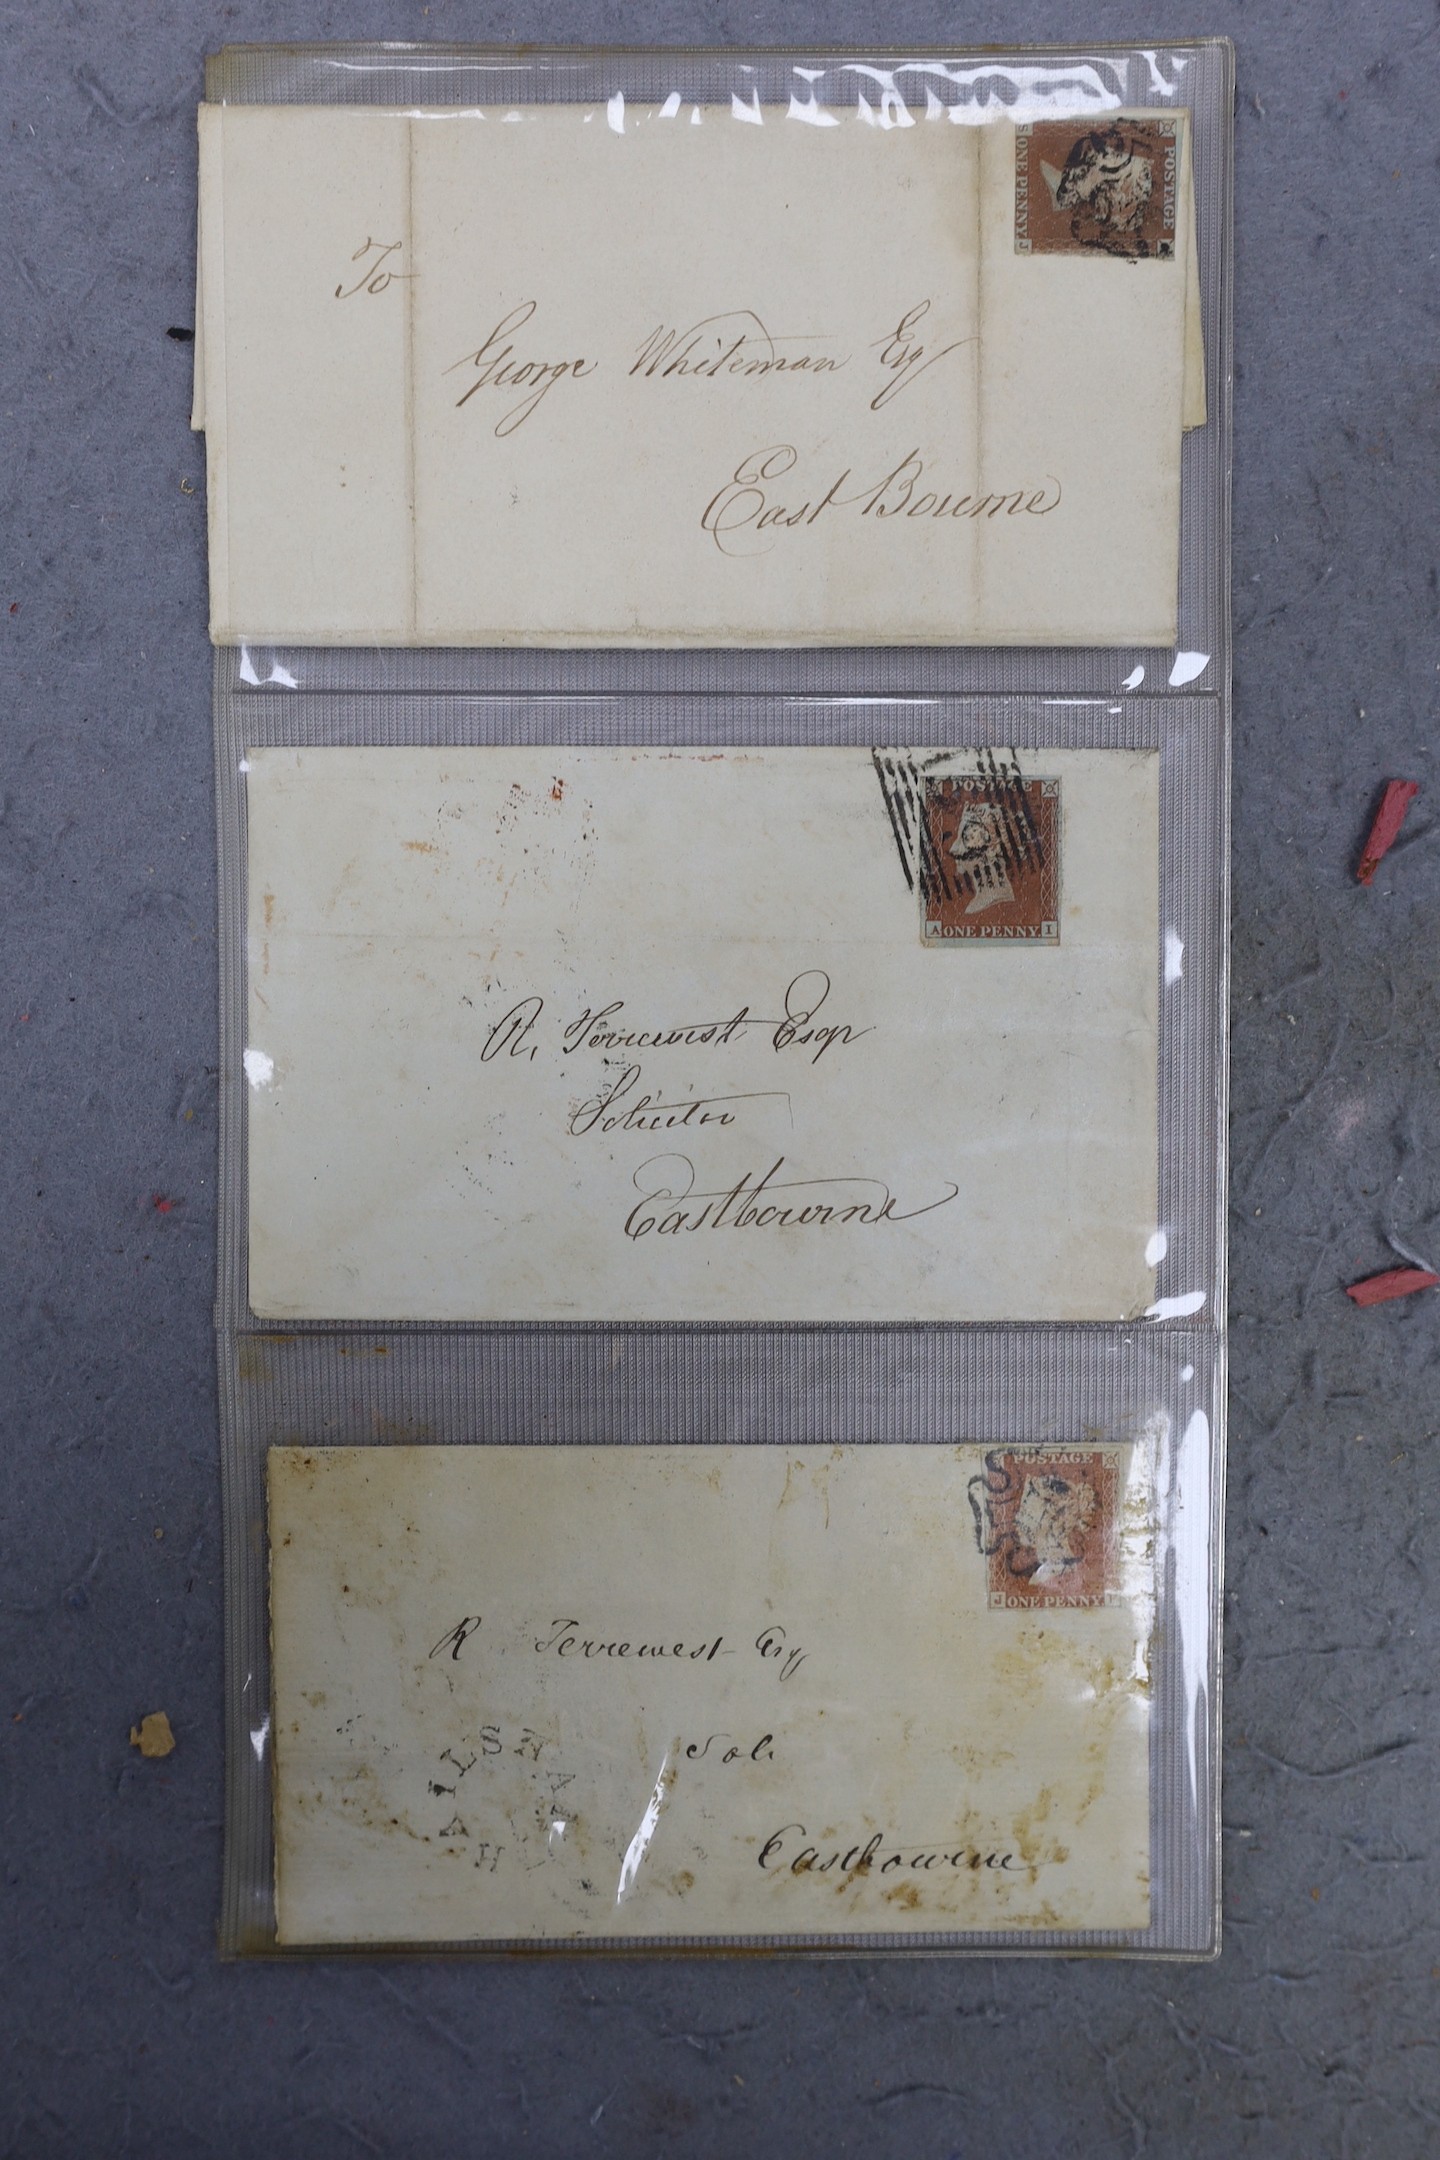 POSTAGE
ONE PENNY
S
J
To
George Whiteman Esq
East Bourne
POSTAGE
A ONE PENNY. I
R. Terrewest Esqr
Solicitor
Eastbourne
POSTAGE
J ONE PENNY
R Terrewest Esq
Solr
Eastbourne
HAILSHAM